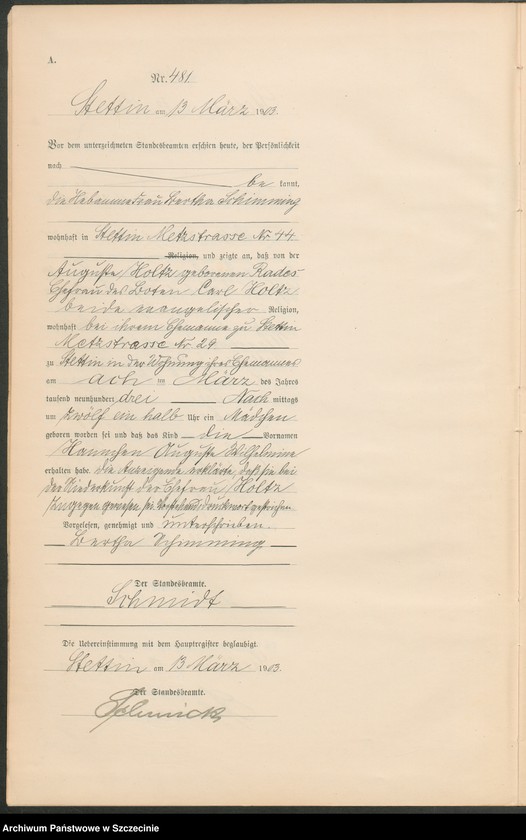 A.
Nr. 481.
Stettin am 13 März 1903.
Vor dem unterzeichneten Standesbeamten erschien heute, der Persönlichkeit
nach
be kannt,
die Hebamme Frau Bertha Schimming
wohnhaft in Stettin Metzstrasse Nr 44
Religion, und zeigte an, daß von der
Auguste Holtz geborenen Rades
Ehefrau des Boten Carl Holtz
beide evangelischer Religion,
wohnhaft bei ihrem Ehemanne zu Stettin
Metzstrasse Nr 29
zu Stettin in der Wohnung ihres Ehemannes
am acht im März des Jahres
tausend neunhundert drei Nach mittags
um zwölf ein halb Uhr ein Mädchen
geboren worden sei und daß das Kind die Vornamen
Hannchen Auguste Wilhelmine
erhalten habe. Die Anzeigende erklärte, daß sie bei
der Niederkunft der Ehefrau Holtz
zugegen gewesen sei. Vorstehend Druckwort gestrichen.
Vorgelesen, genehmigt und unterschrieben.
Bertha Schimming
Der Standesbeamte.
Schmidt
Die Uebereinstimmung mit dem Hauptregister beglaubigt.
Stettin am 13 März 1903.
Der Standesbeamte.
Archiwum Państwowe w Szczecinie